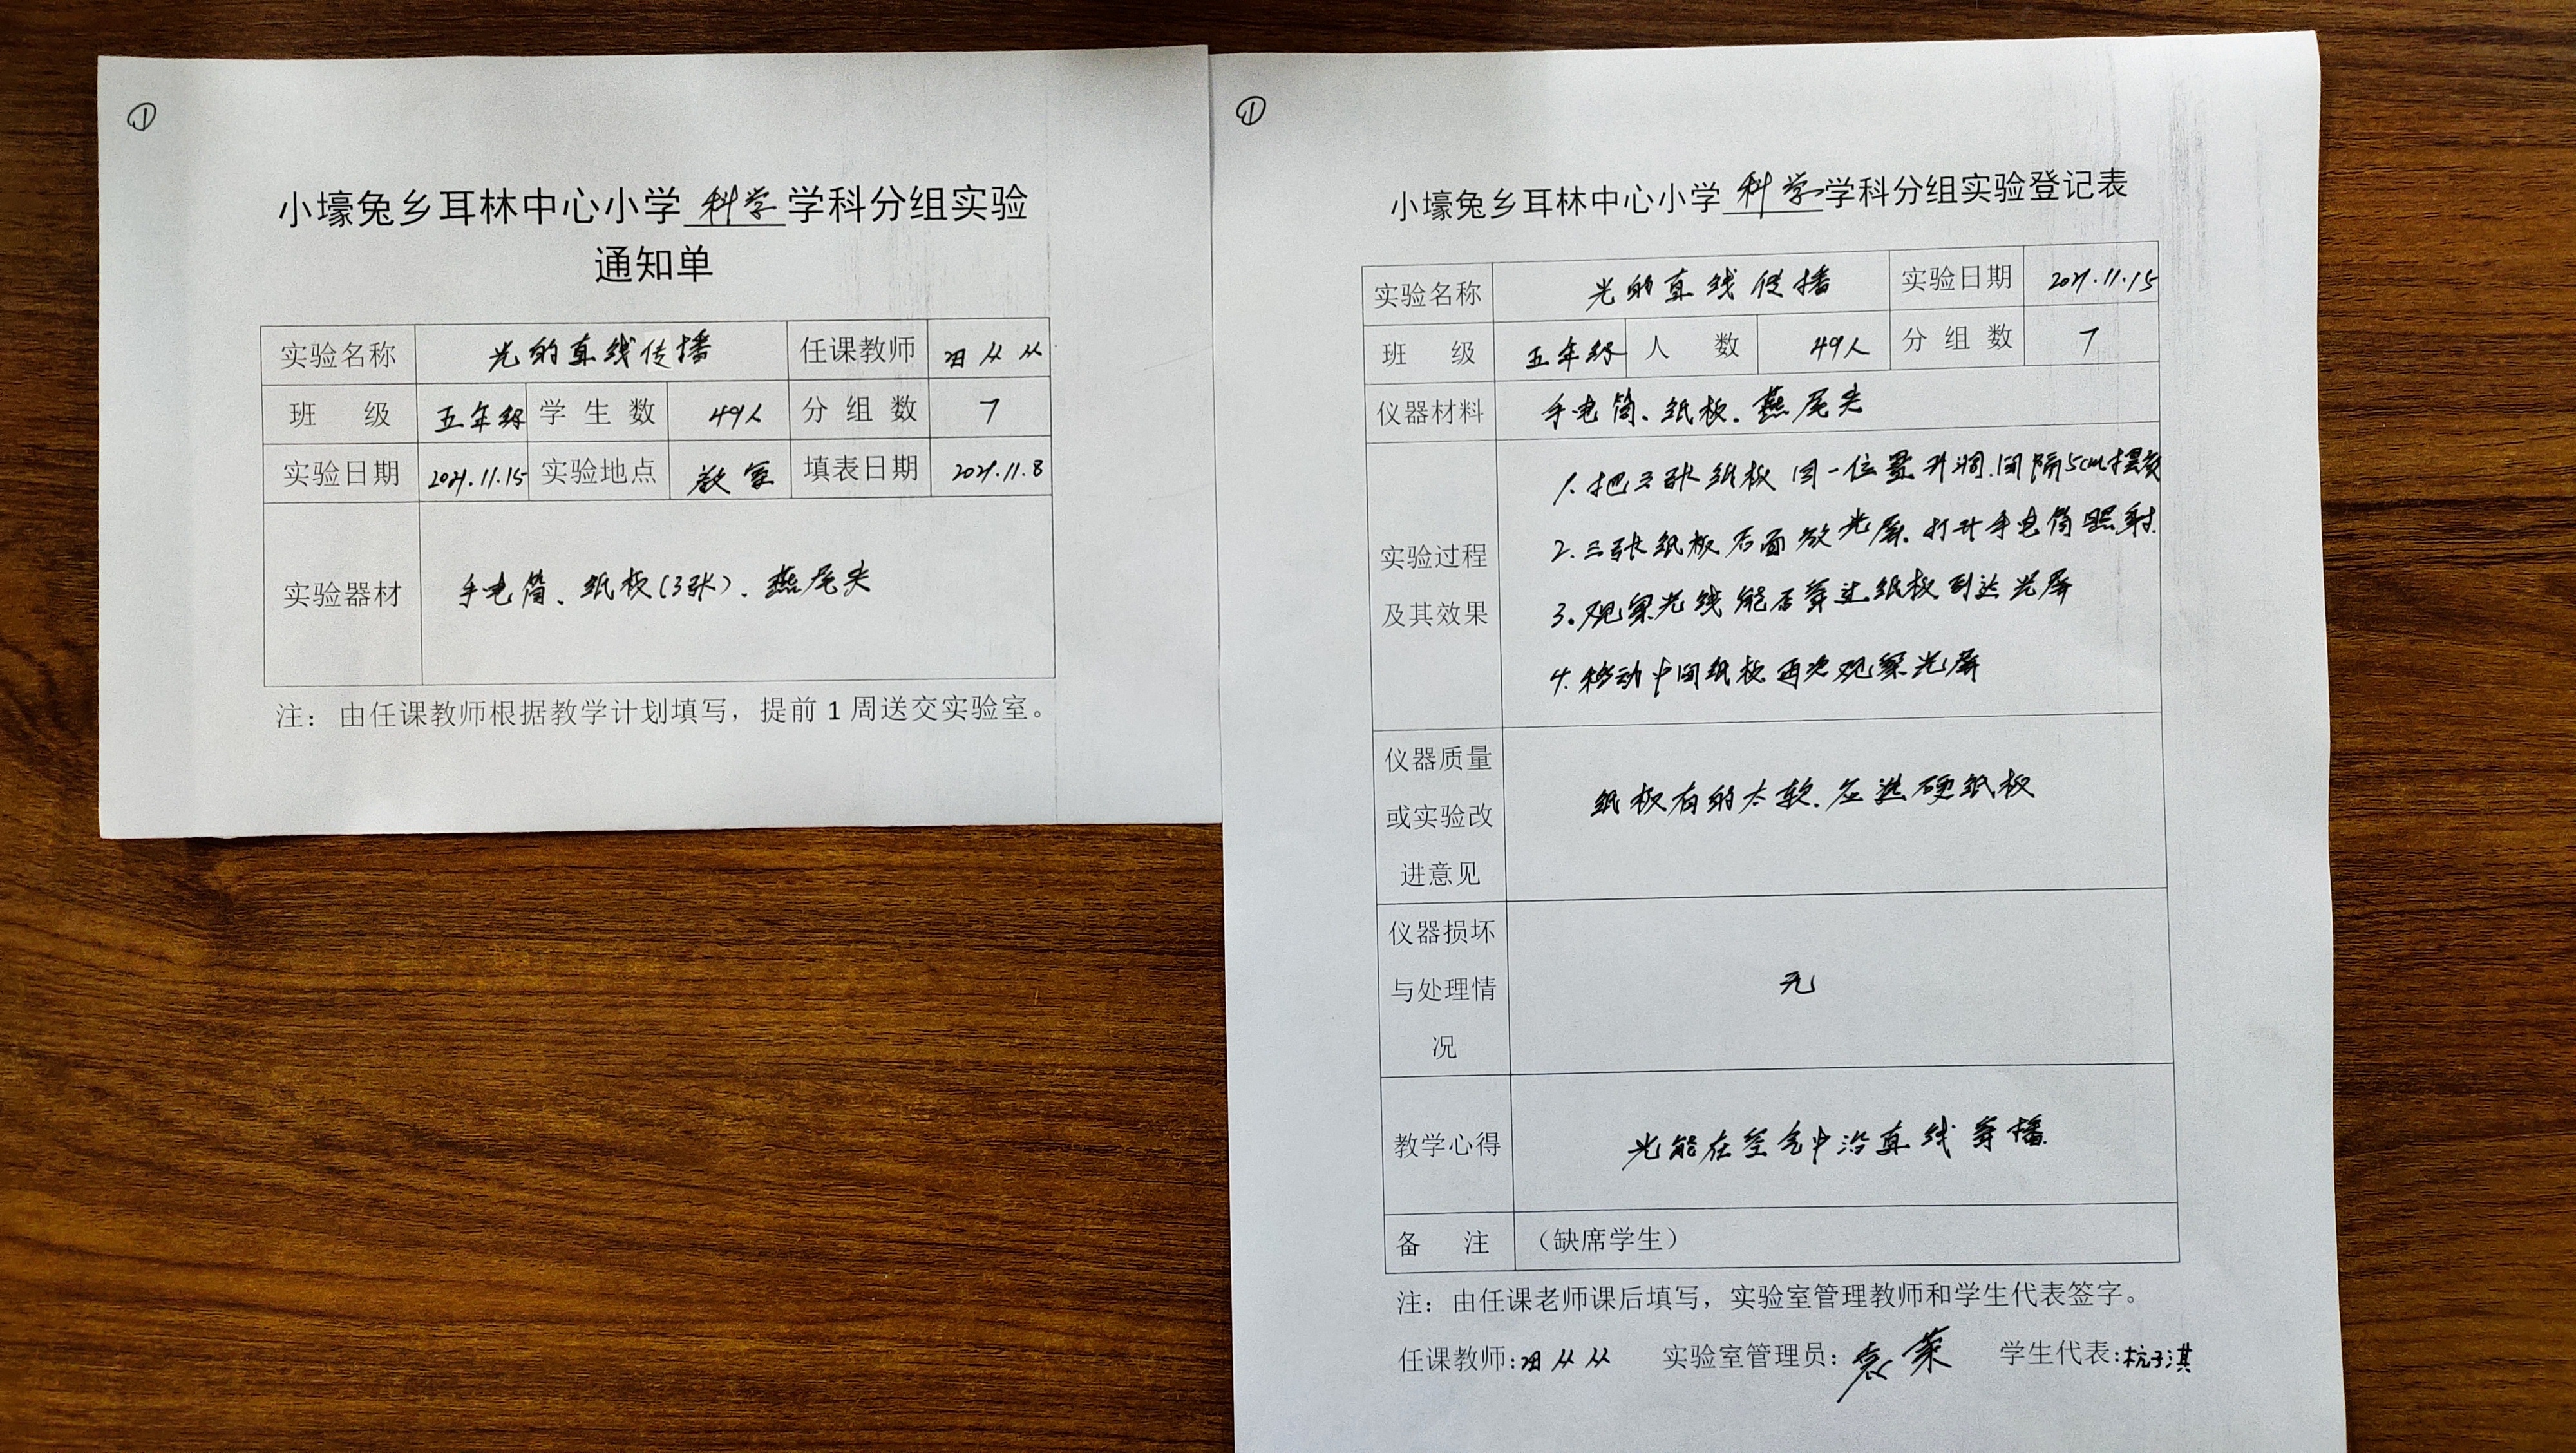 ①
小壕兔乡耳林中心小学 科学 学科分组实验
通知单
实验名称 光的直线传播 任课教师 从从
班 级 五年级 学生数 49人 分组数 7
实验日期 2021.11.15 实验地点 教室 填表日期 2021.11.8
实验器材 手电筒、纸板(3张)、燕尾夹
注：由任课教师根据教学计划填写，提前1周送交实验室。
①
小壕兔乡耳林中心小学 科学 学科分组实验登记表
实验名称 光的直线传播 实验日期 2021.11.15
班 级 五年级 人 数 49人 分组数 7
仪器材料 手电筒、纸板、燕尾夹
实验过程
及其效果
1.把三张纸板同一位置开洞.间隔5cm摆放
2.三张纸板后面放光屏.打开手电筒照射.
3.观察光线能否穿过纸板到达光屏
4.移动中间纸板再次观察光屏
仪器质量
或实验改
进意见
纸板有的太软.应选硬纸板
仪器损坏
与处理情
况
无
教学心得 光能在空气中沿直线穿播.
备 注 （缺席学生）
注：由任课老师课后填写，实验室管理教师和学生代表签字。
任课教师: 从从 实验室管理员: 学生代表:杭子淇